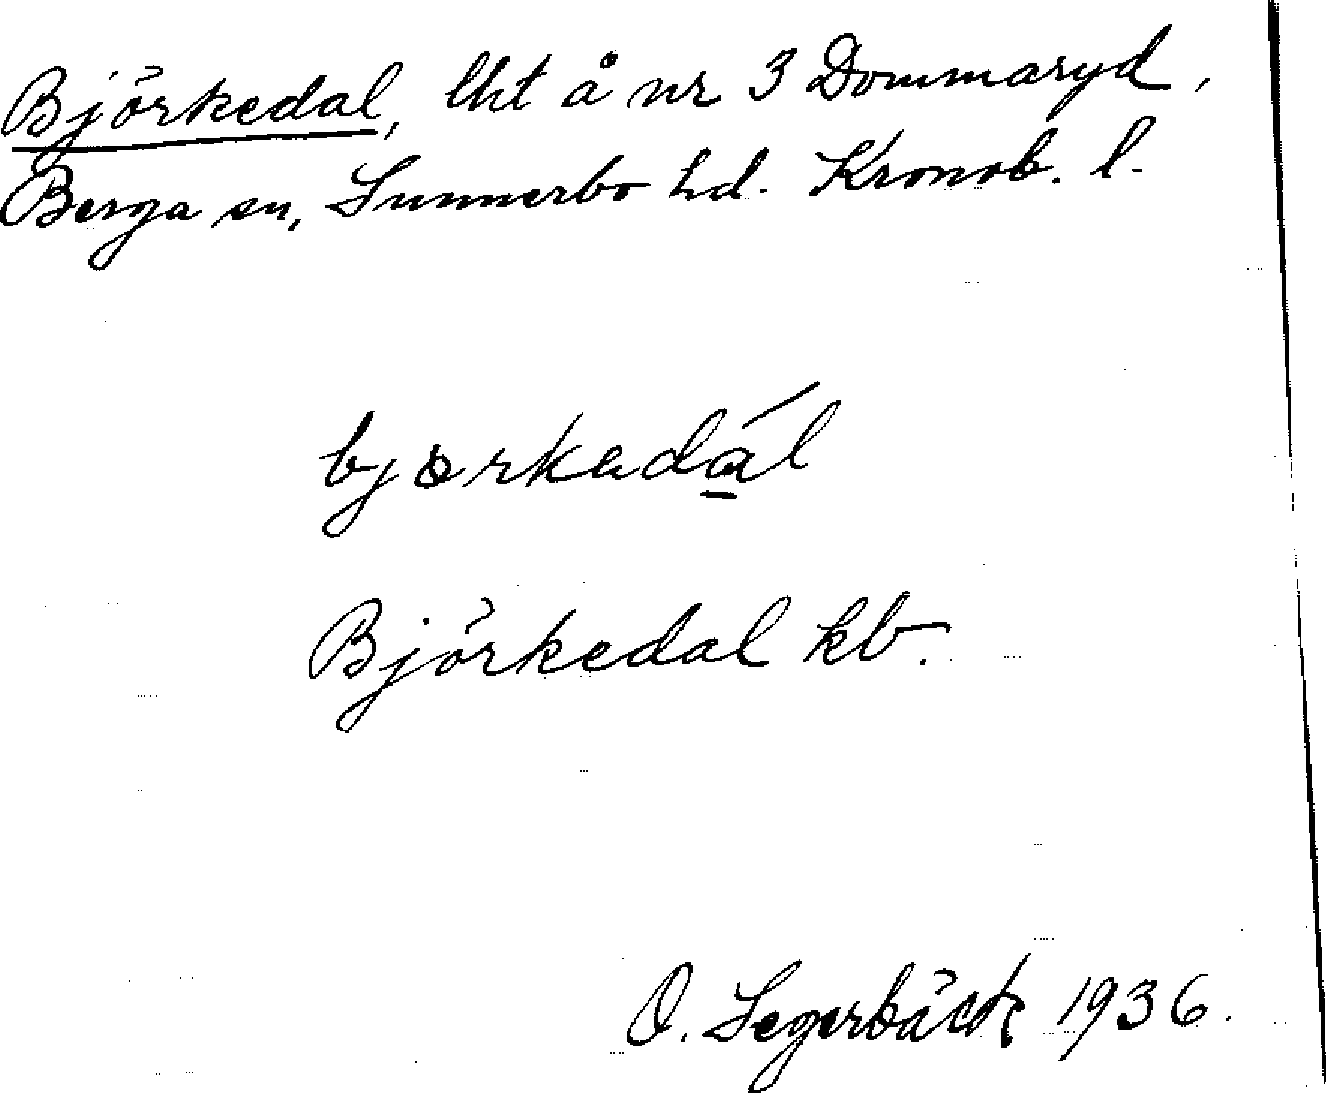 Björkedal, lht å nr 3 Dommaryd,
Berga sn, Sunnerbo hd. Kronob. l.
bjørkadál
Björkedal kb.
O. Segerbäck 1936.